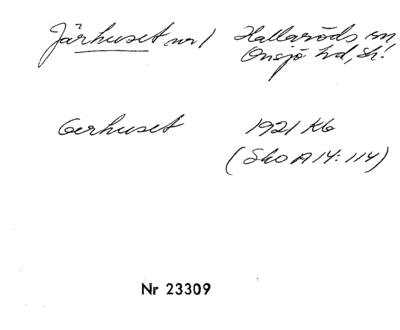 Järhuset nr 1 Hallaröds sn
Onsjö hd, Sk!
Gerhuset 1921 Kb
(Sko A 14: 114)
Nr 23309